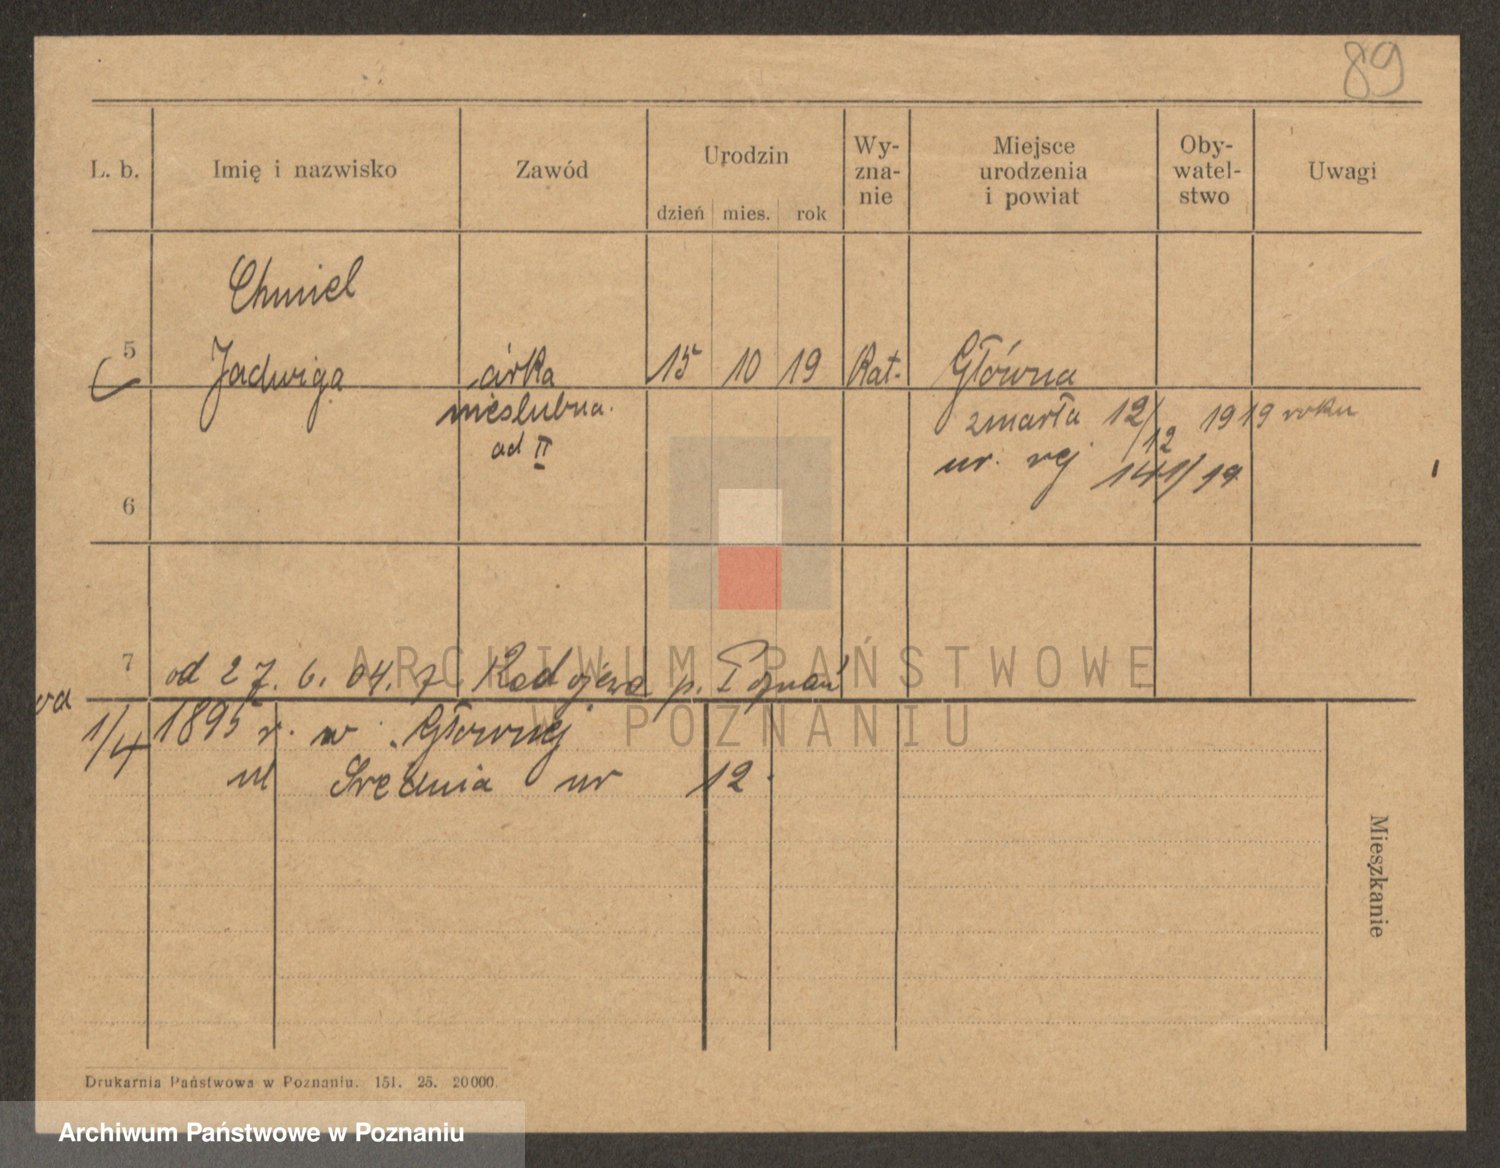 89
L. b. Imię i nazwisko Zawód Urodzin Wy-zna-nie Miejsce urodzenia i powiat Oby-watel-stwo Uwagi
dzień mies. rok
Chmiel
5 Jadwiga córka 15 10 19 Kat. Główna
nieślubna. zmarła 12/12 1919 roku
ad II nr. rej 141/19
6
ARCHIWUM PAŃSTWOWE
W POZNANIU
7 od 27. 6. 04. z Radojewa p. Poznań
od 1/4 1895 r. w Głównej
ul Średnia nr 12.
Mieszkanie
Drukarnia Państwowa w Poznaniu. 151. 25. 20000.
Archiwum Państwowe w Poznaniu